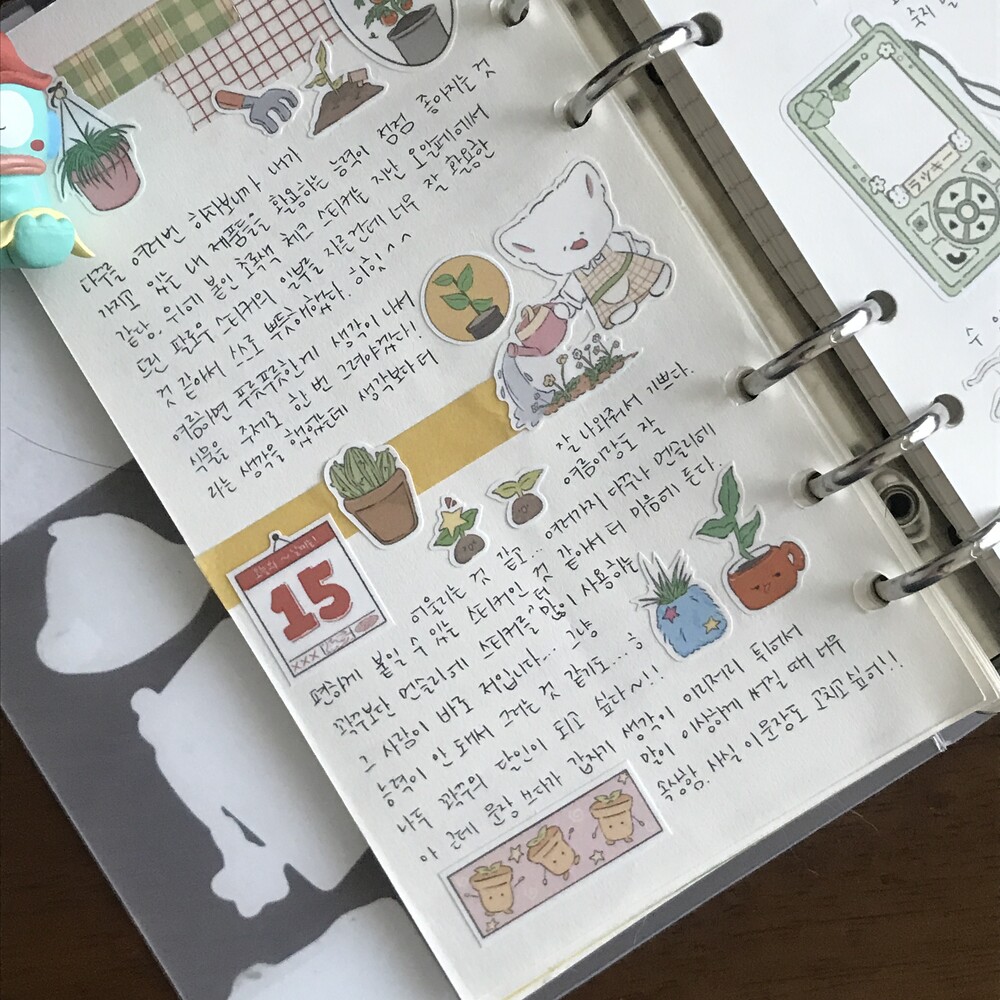 다꾸를 여러번 하다보니까 내가
가지고 있는 내 제품들을 활용하는 능력이 점점 좋아지는 것
같당. 위에 붙인 초록색 체크 스티커는 지난 오일페에서
드린 팔로우 스티커의 일부를 자른건데 너무 잘 활용한
것 같아서 스스로 뿌듯해했다. 히힣^^
여름이면 푸릇푸릇한게 생각이 나서
식물을 주제로 한 번 그려야겠다!
라는 생각을 했었는데 생각보다 더
잘 나와줘서 기쁘다.
여름이랑도 잘
어울리는 것 같고... 여러가지 다꾸나 먼슬리에
편하게 붙일 수 있는 스티커인 것 같아서 더 마음에 든다.
꽉꾸보단 먼슬리에 스티커를 "더" 많이 사용하는
그 사람이 바로 저입니다... 그냥
능력이 안 돼서 그러는 것 같기도....ㅎ
나두 꽉꾸의 달인이 되고 싶다~!!
아 근데 문장 쓰다가 갑자기 생각이 이리저리 튀어서
말이 이상하게 써질 때 너무
속상함. 사실 이 문장도 고치고 싶어!!
15
XXX
ラッキー
수